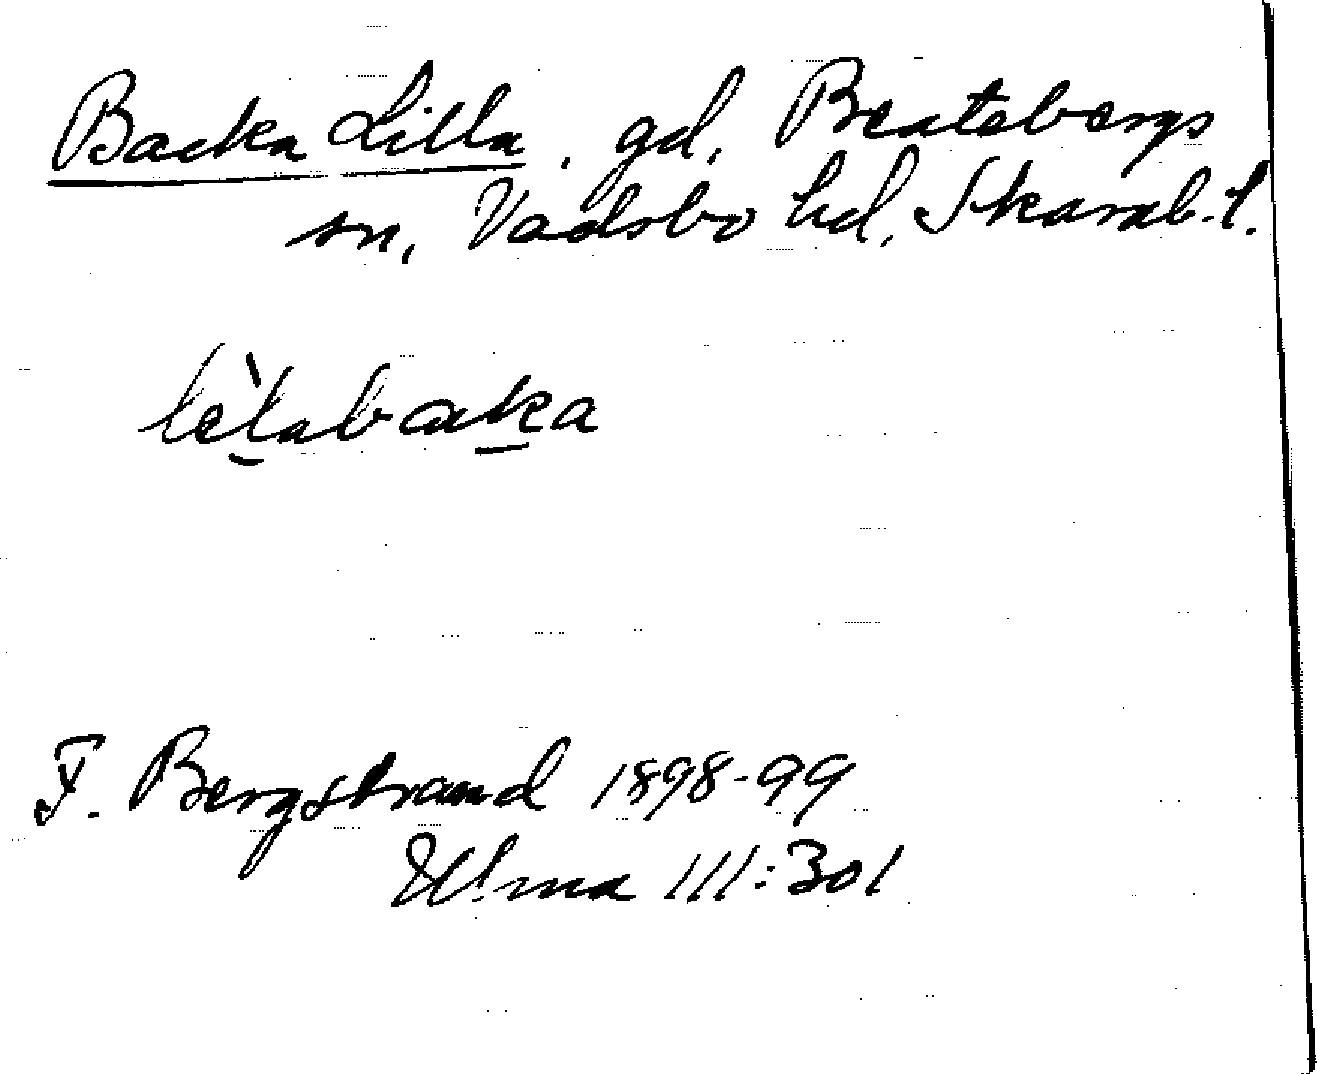 Backa Lilla, gd, Beatebergs
sn, Vadsbo hd, Skarab. l.
lèlabaka
F. Bergstrand 1898-99
Ulma 111:301